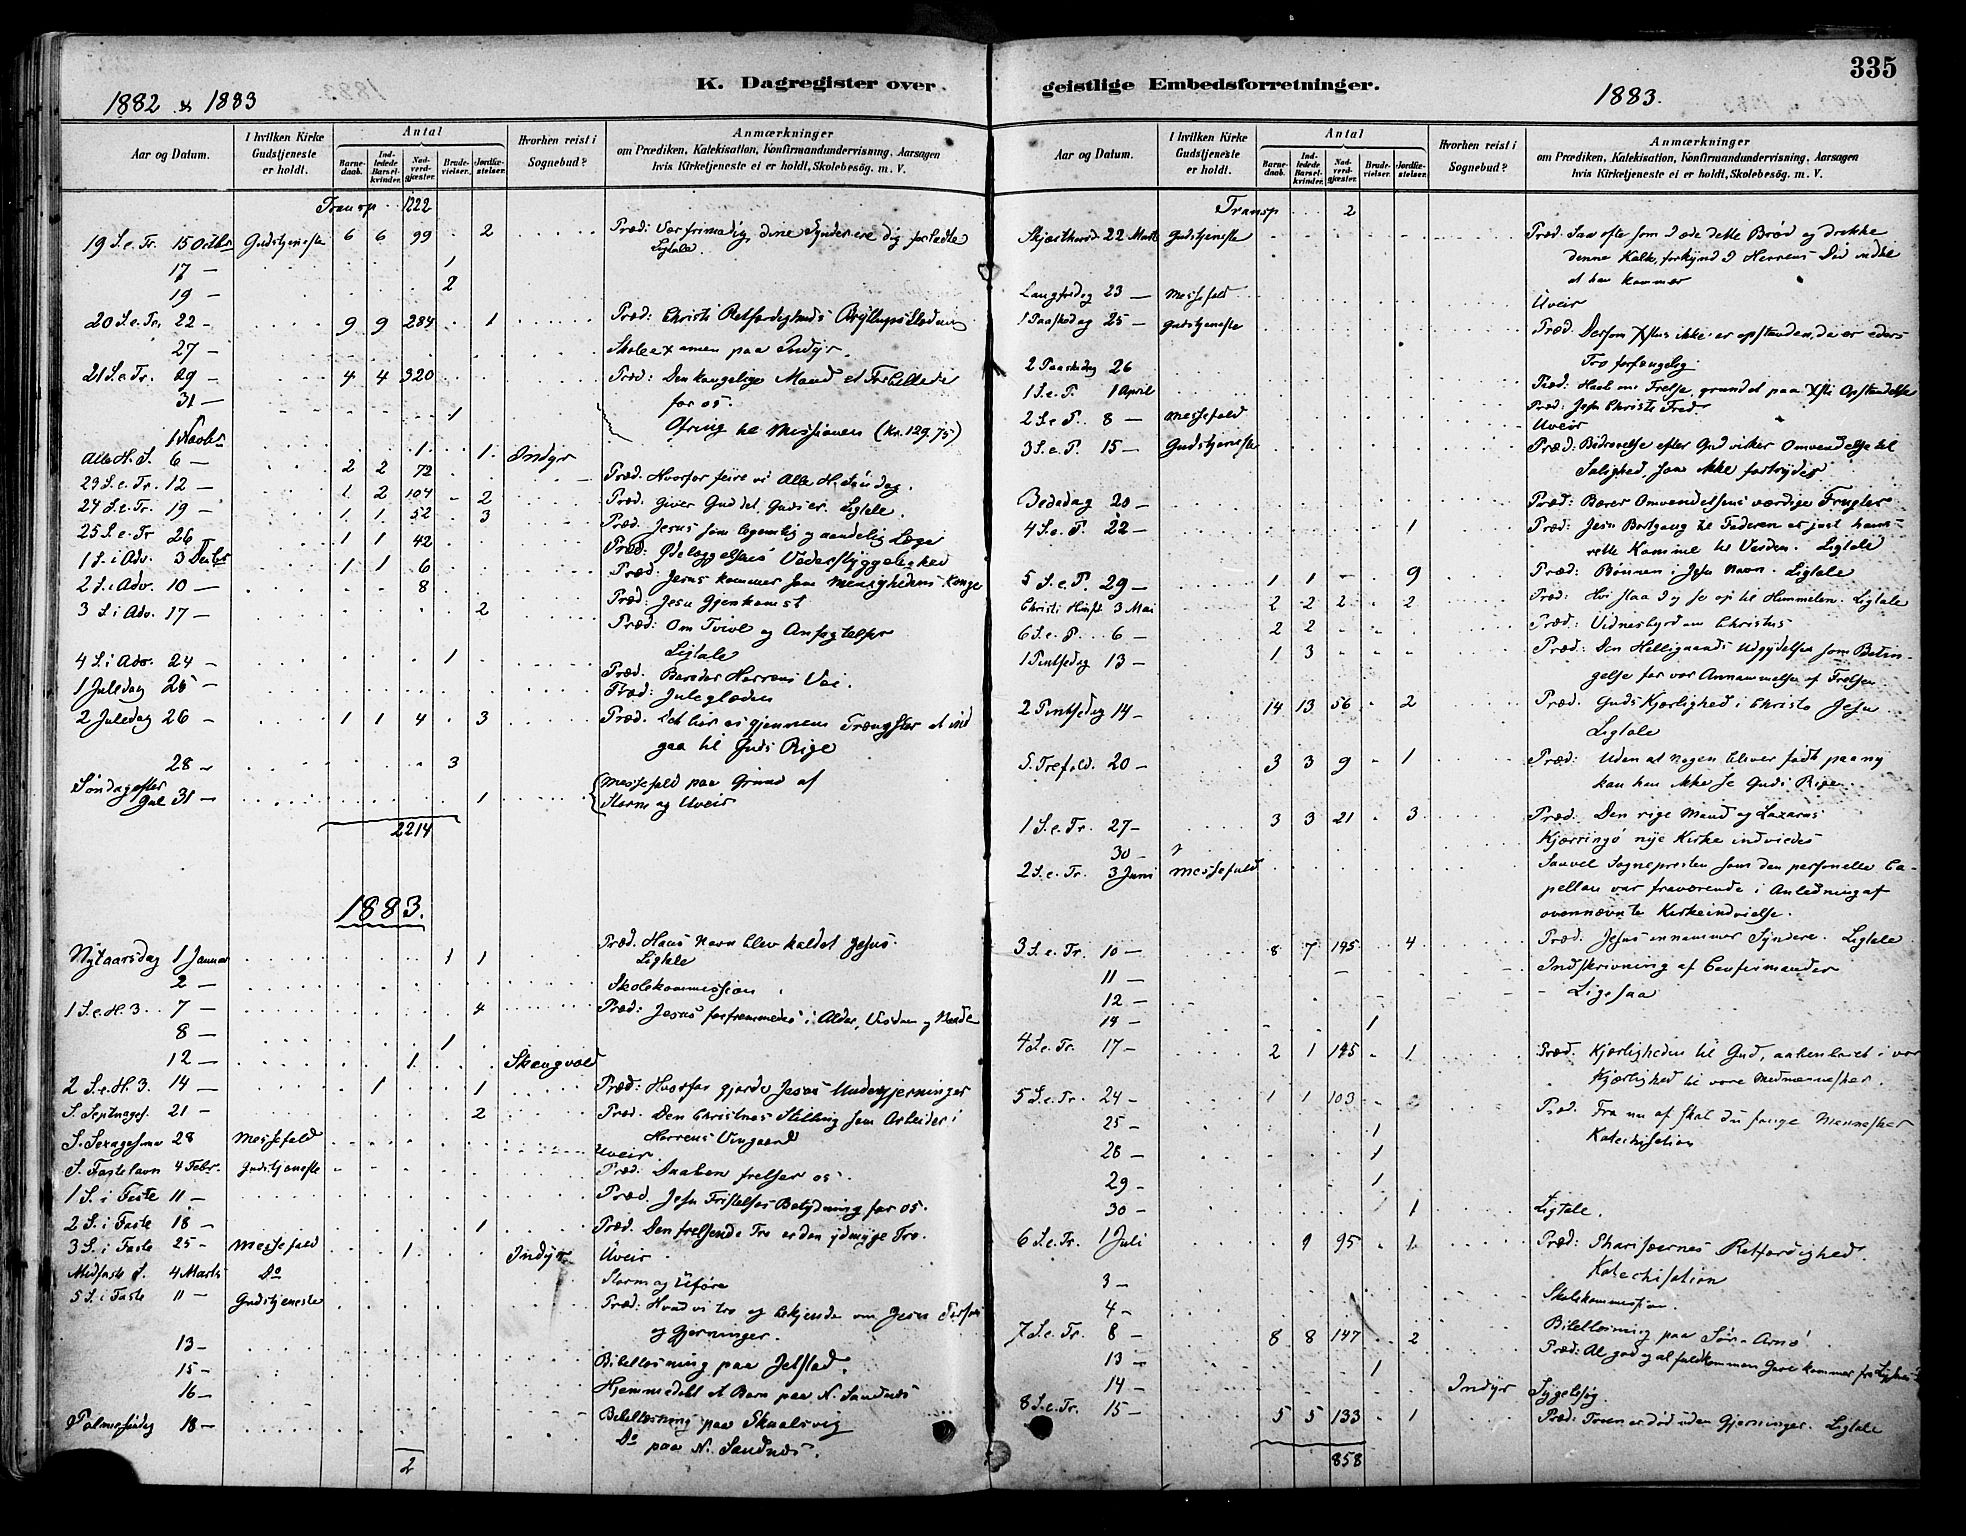 335
K. Dagregister over
geistlige Embedsforretninger.
1882 & 1883
1883.
Aar og Datum.
I hvilken Kirke Gudstjeneste er holdt.
Antal
Barnedaab.
Indledede Barselkvinder.
Nadverdgjæster.
Brudevielser.
Jordfæstelser.
Hvorhen reist i Sognebud?
Anmærkninger
om Prædiken, Katekisation, Konfirmandundervisning, Aarsagen
hvis Kirketjeneste ei er holdt, Skolebesøg. m. V.
Transp 1222
19 S. e. Tr. 15 Octbr Gudstjeneste 6 6 99 2 Præd: Vær frimodig, dine Synder ere dig forladte
Ligtale.
17 — 1
19 — 2
20 S. e. Tr. 22 — 9 9 284 1 Præd: Christi Retfærdigheds Bryllups
27 — Skoleexamen paa Indyr.
21 S. e. Tr. 29 — 4 4 320 Præd: Den kongelige Mand et Forbillede
for os.
31 — 1
Ofring til Missionen (Kr. 129.75)
1 Novbr 1 1 Indyr
Alle H. S. 6 — 2 2 72 Præd: Hvorfor feire vi Alle H. Søndag.
23 S. e. Tr. 12 — 1 2 104 2 Præd: Giver Gud det, Guds er. Ligtale.
24 S. e. Tr. 19 — 1 1 52 3 Præd: Jesus som legemlig og aandelig Læge
25 S. e. Tr 26 — 1 1 42 Præd: Ødelæggelsens Vederstyggelighed
1 S. i Adv. 3 Decbr 1 1 6 Præd. Jesus kommer som Menighedens Konge
2 S. i Adv. 10 — 8 Præd: Jesu Gjenkomst
3 S. i Adv. 17 — 2 Præd: Om Tvivl og Anfægtelser
Ligtale
4 S. i Adv. 24 — 1 Præd. Bereder Herrens Vei.
1 Juledag 25 — Præd: Juleglæden
2 Juledag 26 — 1 1 4 3 Præd. Det bør os gjennem Trængsler at ind
gaa til Guds Rige
28 — 3
Søndag efter
Jul 31 — 1 Messefald paa Grund af
Storm og Uveir
2214
1883.
Nytaarsdag 1 Januar 1 1 Præd. Hans Navn blev kaldet Jesus.
Ligtale
2 — Skolekommission
1 S. e. H. 3 7 — 4 Præd: Jesus forfremmedes i Alder, Visdom og Naade
8 — 1
12 — 1 Skougvold
2 S. e. H. 3. 14 — 1 1 Præd: Hvorfor gjorde Jesus Undergjerninger
S. Septuages. 21 — 2 Præd. Den Christnes Stilling som Arbeider i
Herrens Vingaard
S. Sexagesima 28 Messefald Uveir.
S. Fastelavn 4 Febr. Gudstjeneste Præd. Daaben frelser os.
1 S. i Faste 11 — Præd. Jesu Fristelses Betydning for os.
2 S. i Faste 18 — 1 Præd. Den frelsende Tro er den ydmyge Tro.
3 S. i Faste 25 — Messefald 1 Indyr Uveir.
Midfaste S. 4 Marts Do Storm og Uføre
5 S. i Faste 11 — Gudstjeneste Præd: Hvad vi tro og bekjende om Jesu Person
og Gjerninger.
13 — Bibellæsning paa Jelstad.
15 — Hjemmedøbt et Barn paa N. Sandnæs
16 — Bibellæsning paa Skaalsvig
Palmesøndag 18 — Do paa N. Sandnæs.
2
Aar og Datum.
I hvilken Kirke Gudstjeneste er holdt.
Antal
Barnedaab.
Indledede Barselkvinder.
Nadverdgjæster.
Brudevielser.
Jordfæstelser.
Hvorhen reist i Sognebud?
Anmærkninger
om Prædiken, Katekisation, Konfirmandundervisning, Aarsagen
hvis Kirketjeneste ei er holdt, Skolebesøg. m. V.
Transp 2
Skjærthorsd 22 Marts Gudstjeneste Præd. Saa ofte som I æde dette Brød og drikke
denne Kalk, forkynd I Herrens Død indtil
at han kommer
Langfredag 23 — Messefald Uveir
1 Paaskedag 25 — Gudstjeneste Præd. Dersom Xstus ikke er opstanden, da er eders
Tro forfængelig
2 Paaskedag 26 Præd: Haab om Frelse, grundet paa Xsti Opstandelse
1 S. e. P. 1 April Præd: Jesu Christi Fred
2 S. e. P. 8 — Messefald Uveir
3 S. e. P. 15 — Gudstjeneste Præd: Bedrøvelse efter Gud virker Omvendelse til
Salighed, som ikke fortrydes
Bededag 20 — Præd: Bærer Omvendelsens værdige Frugter
4 S. e. P. 22 — 1 Præd: Jesu Bortgang til Faderen er just hans
rette Komme til Verden. Ligtale
5 S. e. P. 29 — 1 1 — 9 Præd: Bønnen i Jesu Navn. Ligtale
Christi Himft 3 Mai 2 2 2 2 Præd: Hvi staa I og se op til Himmelen. Ligtale
6 S. e. P. 6 — 2 2 Præd: Vidnesbyrd om Christus
1 Pintsedag 13 — 1 3 Præd: Den Helligaands Udgydelse som Betin-
gelse for vor Annammelse af Frelsen
2 Pintsedag 14 — 14 13 56 2 Præd. Guds Kjærlighed i Christo Jesu
Ligtale
S. Trefold. 20 — 3 3 9 1 Præd: Uden at Nogen bliver født paany
kan han ikke se Guds Rige
1 S. e. Tr. 27 — 3 3 21 3 Præd. Den rige Mand og Lazarus
30 — Kjærringø nye Kirke indviedes
2 S. e. Tr. 3 Juni Messefald Saavel Sognepresten som den personelle Ca-
pellan var fraværende i Anledning af
ovennævnte Kirkeindvielse.
3 S. e. Tr. 10 — 8 7 195 4 Præd: Jesus annammer Syndere. Ligtale
11 — Indskrivning af Confirmander
12 — Ligesaa
14 — 1
4 S. e. Tr. 17 — 2 1 145 1 Præd. Kjærligheden til Gud, aabenbaret i vor
Kjærlighed til vore Medmennesker.
5 S. e. Tr. 24 — 1 1 103 Præd. Fra nu af skal du fange Mennesker
Katechisation
25 — 1
28 — 1
29 — 1
30 — 1 Ligtale.
6 S. e. Tr. 1 Juli 9 95 1 Præd: Pharisæernes Retfærdighed.
Katechisation
3 — Skolekommission.
4 — Bibellæsning paa Sør-Arnø
7 S. e. Tr. 8 — 8 8 147 2 Præd: Al god og al fuldkommen Gave kommer fra
13 — 1
14 — Indyr Sygebesøg
8 S. e. Tr. 15 — 5 5 133 1 Præd: Troen er død uden Gjerninger. Ligtale
858